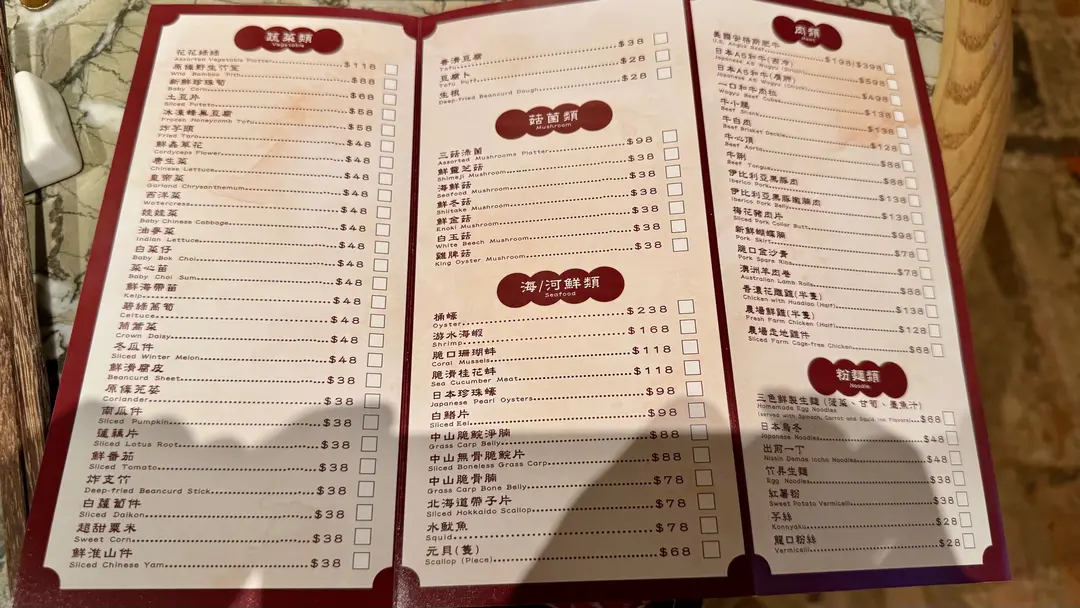 蔬菜類
Vegetable
花花綠綠
Assorted Vegetable Platter $118
原條野生竹笙
Wild Bamboo Pith $88
新鮮珍珠筍
Baby Corn $68
土豆片
Sliced Potato $58
冰凍蜂巢豆腐
Frozen Honeycomb Tofu $58
炸芋頭
Fried Taro $48
鮮蟲草花
Cordyceps Flower $48
唐生菜
Chinese Lettuce $48
皇帝菜
Garland Chrysanthemum $48
西洋菜
Watercress $48
娃娃菜
Baby Chinese Cabbage $48
油麥菜
Indian Lettuce $48
白菜仔
Baby Bok Choi $48
菜心苗
Baby Choi Sum $48
鮮海帶苗
Kelp $48
碧綠萵筍
Celtuce $48
茼蒿菜
Crown Daisy $48
冬瓜件
Sliced Winter Melon $48
鮮滑腐皮
Beancurd Sheet $38
原條芫荽
Coriander $38
南瓜件
Sliced Pumpkin $38
蓮藕片
Sliced Lotus Root $38
鮮番茄
Sliced Tomato $38
炸支竹
Deep-fried Beancurd Stick $38
白蘿蔔件
Sliced Daikon $38
超甜粟米
Sweet Corn $38
鮮淮山件
Sliced Chinese Yam $38
香滑豆腐
Tofu $38
豆腐卜
Tofu Puff $28
生根
Deep-fried Beancurd Dough $28
菇菌類
Mushroom
三菇滘菌
Assorted Mushrooms Platter $98
鮮靈芝菇
Shimeji Mushroom $38
海鮮菇
Seafood Mushroom $38
鮮冬菇
Shiitake Mushroom $38
鮮金菇
Enoki Mushroom $38
白玉菇
White Beech Mushroom $38
雞脾菇
King Oyster Mushroom $38
海/河鮮類
Seafood
桶蠔
Oyster $238
游水海蝦
Shrimp $168
脆口珊瑚蚌
Coral Mussels $118
脆滑桂花蚌
Sea Cucumber Meat $118
日本珍珠蠔
Japanese Pearl Oysters $98
白鱔片
Sliced Eel $98
中山脆鯇淨腩
Grass Carp Belly $88
中山無骨脆鯇片
Sliced Boneless Grass Carp $88
中山脆骨腩
Grass Carp Bone Belly $78
北海道帶子片
Sliced Hokkaido Scallop $78
水魷魚
Squid $78
元貝(隻)
Scallop (Piece) $68
肉類
Meat
美國安格斯肥牛
U.S. Angus Beef $198/$398
日本A5和牛(西冷)
Japanese A5 Wagyu (Sirloin) $598
日本A5和牛(肩胛)
Japanese A5 Wagyu (Chuck) $498
一口和牛肉粒
Wagyu Beef Cubes $138
牛小腱
Beef Shank $138
牛白肉
Beef Brisket Deckle $128
牛心頂
Beef Aorta $88
牛脷
Beef Tongue $88
伊比利亞黑豚肉
Iberico Pork $138
伊比利亞黑豚腩肉
Iberico Pork Belly $138
梅花豬肉片
Sliced Pork Collar Butt $98
新鮮蝴蝶腩
Pork Skirt $78
脆口金沙骨
Pork Spare Ribs $78
澳洲羊肉卷
Australian Lamb Rolls $88
香濃花雕雞(半隻)
Chicken with Huadiao (Half) $138
農場鮮雞(半隻)
Fresh Farm Chicken (Half) $128
農場走地雞件
Sliced Farm Cage-free Chicken $68
粉麵類
Noodle
三色鮮製生麵 (菠菜、甘筍、墨魚汁)
Homemade Egg Noodles
(served with Spinach, Carrot and Squid Ink Flavors) $68
日本烏冬
Japanese Noodles $48
出前一丁
Nissin Demae Iccho Noodles $48
竹昇生麵
Egg Noodles $38
紅薯粉
Sweet Potato Vermicelli $38
芋絲
Konnyaku $28
龍口粉絲
Vermicelli $28